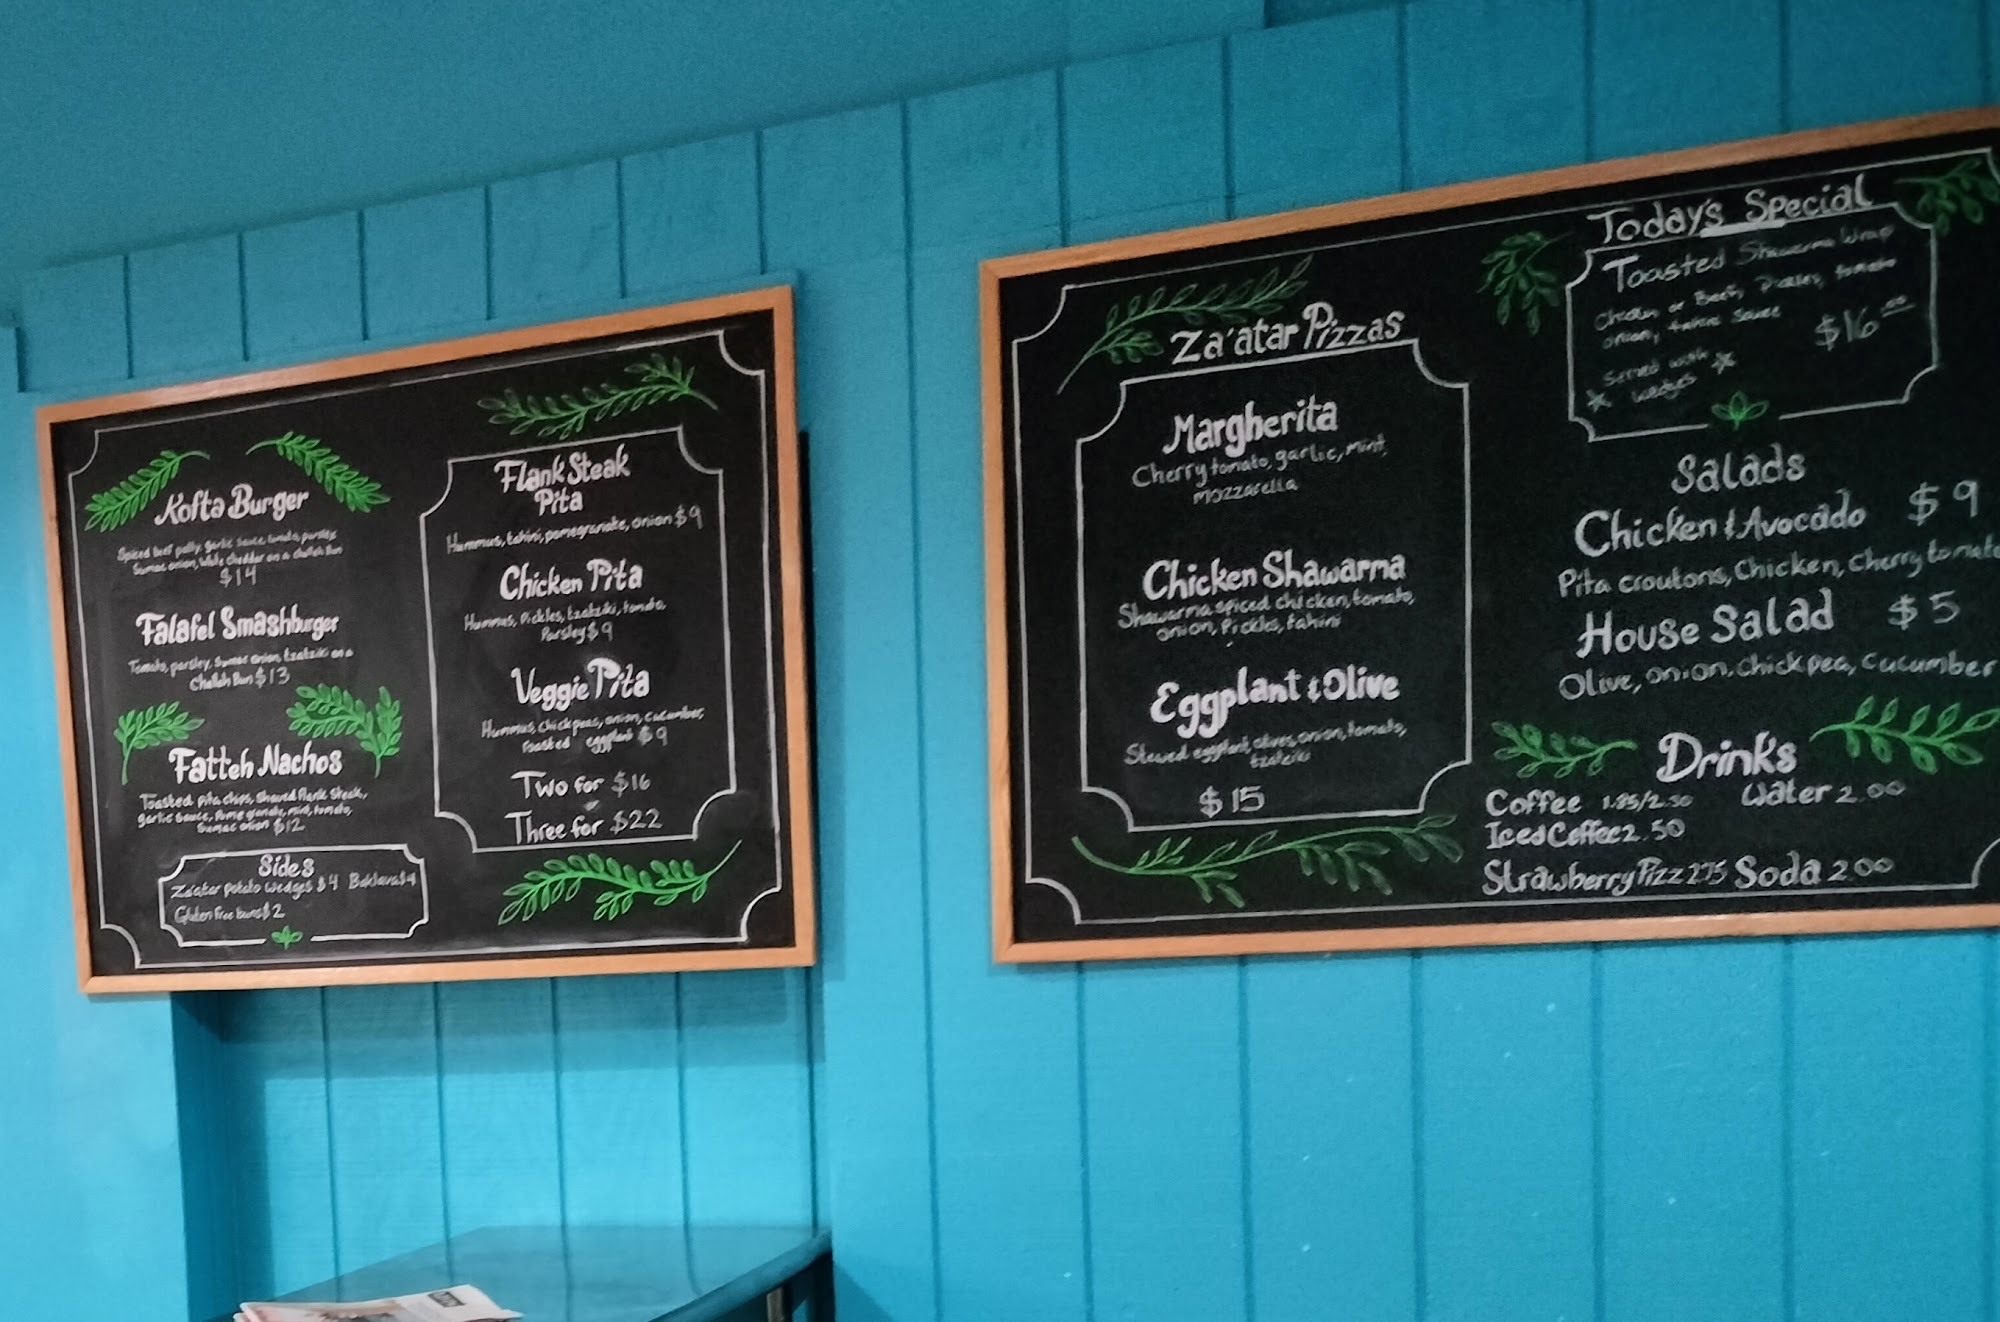 Kofta Burger
Spiced beef patty, garlic sauce, tomato, parsley,
Sumac onion, White cheddar on a challah Bun
$14
Falafel Smashburger
Tomato, parsley, Sumac onion, tzatziki on a
Challah Bun $13
Fatteh Nachos
Toasted pita chips, Shaved flank Steak,
garlic sauce, Pomegranate, mint, tomato,
Sumac onion $12
Sides
Za'atar potato wedges $4 Baklava $4
Gluten free buns $2
Flank Steak
Pita
Hummus, tahini, pomegranate, onion $9
Chicken Pita
Hummus, Pickles, tzatziki, tomato,
Parsley $9
Veggie Pita
Hummus, Chickpeas, onion, cucumber,
roasted eggplant $9
Two for $16
or
Three for $22
Za'atar Pizzas
Margherita
Cherry tomato, garlic, mint,
mozzarella
Chicken Shawarma
Shawarma spiced chicken, tomato,
onion, Pickles, tahini
Eggplant & Olive
Stewed eggplant, olives, onion, tomato,
tzatziki
$15
Today's Special
Toasted Shawarma Wrap
Chicken or Beef, Pickles, tomato
onion, tahini Sauce
$16.00
Served with
wedges
Salads
Chicken & Avocado $9
Pita croutons, Chicken, Cherry tomato
House Salad $5
Olive, onion, chickpea, cucumber
Drinks
Coffee 1.85/2.50 Water 2.00
Iced Coffee 2.50
Strawberry Pizz 2.75 Soda 2.00